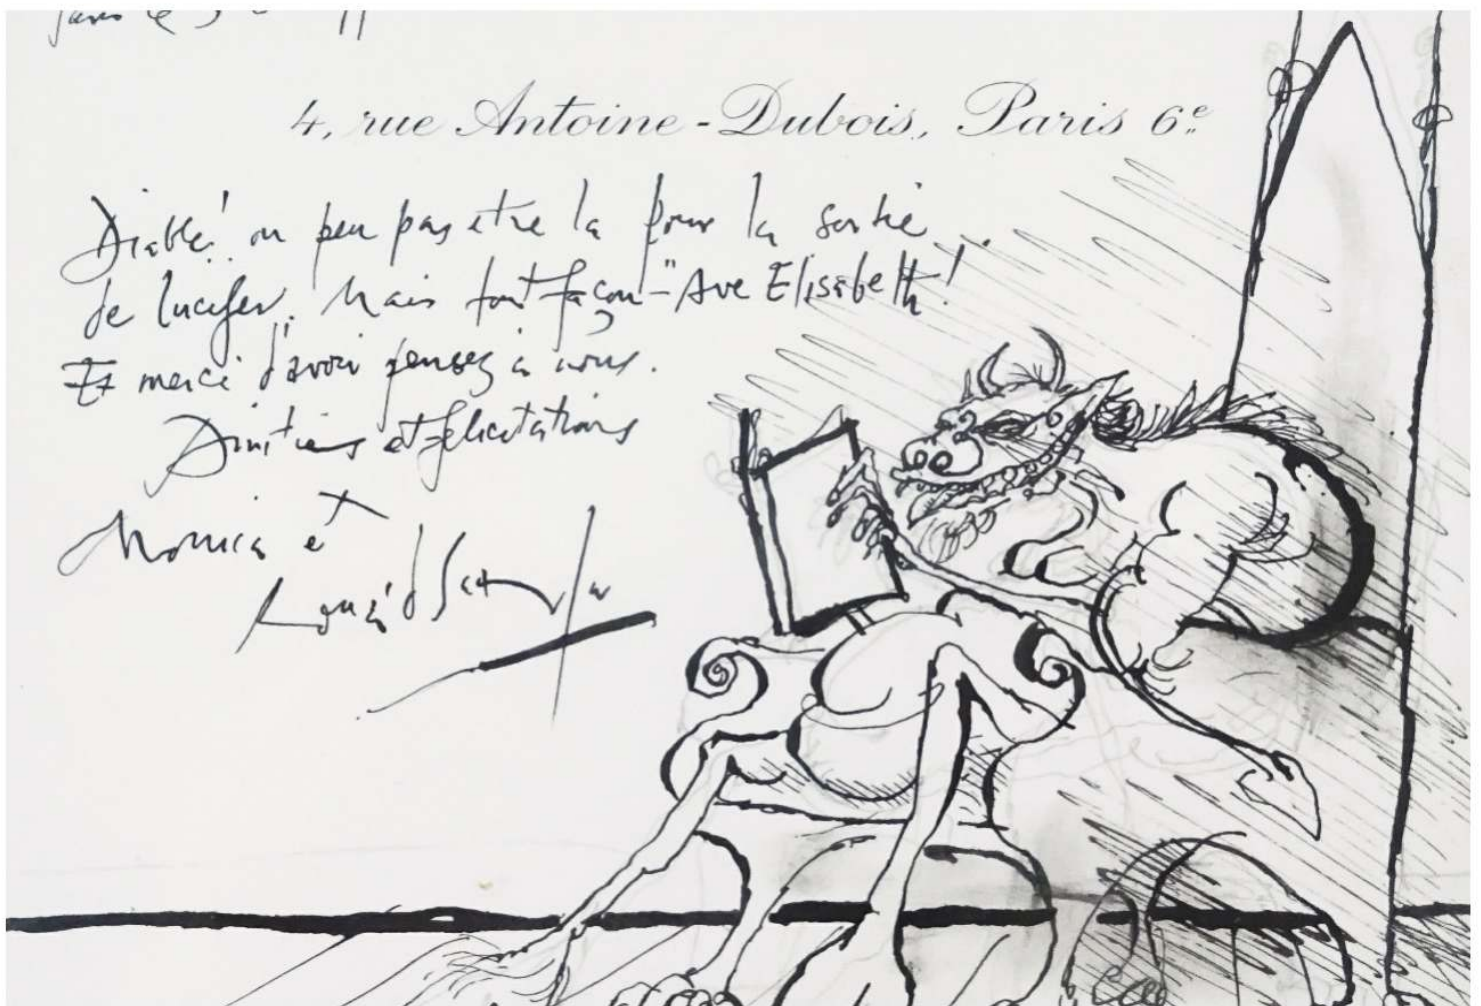 Paris le
4, rue Antoine-Dubois, Paris 6e
Diable! on peu pas etre la pour la sortie
de lucifer. Mais tout façon - "Ave Elisabeth!
Et merci d'avoir pensez à nous.
et felicitations
Monica et